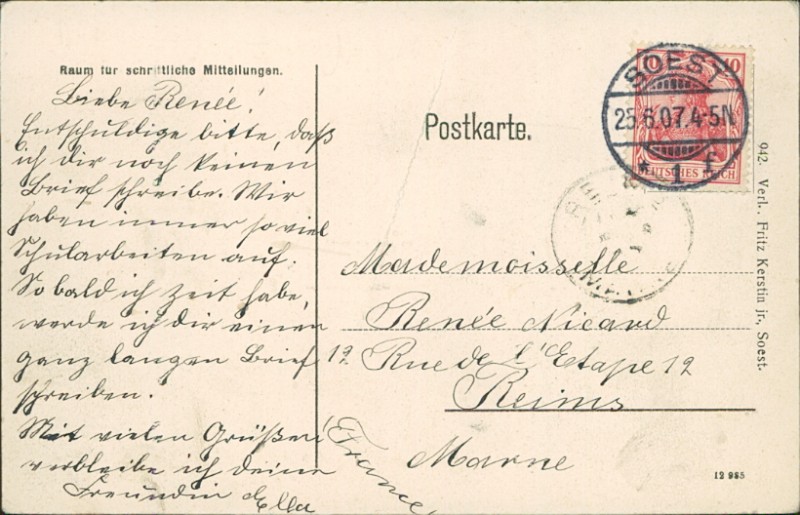 Raum für schriftliche Mitteilungen.
Liebe Renée!
Entschuldige bitte, daß
ich dir noch keinen
Brief schreibe. Wir
haben immer so viel
Schularbeiten auf.
So bald ich Zeit habe,
werde ich dir einen
ganz langen Brief
schreiben.
Mit vielen Grüßen
verbleibe ich deine
Freundin Ella
Postkarte.
10
SOEST
25.6.07.4-5N
* 1 f
DEUTSCHES REICH
Mademoisselle
Renée Nicard
12 Rue de l'Etape 12
Reims
Marne
France.
942. Verl. Fritz Kerstin jr., Soest.
12 985